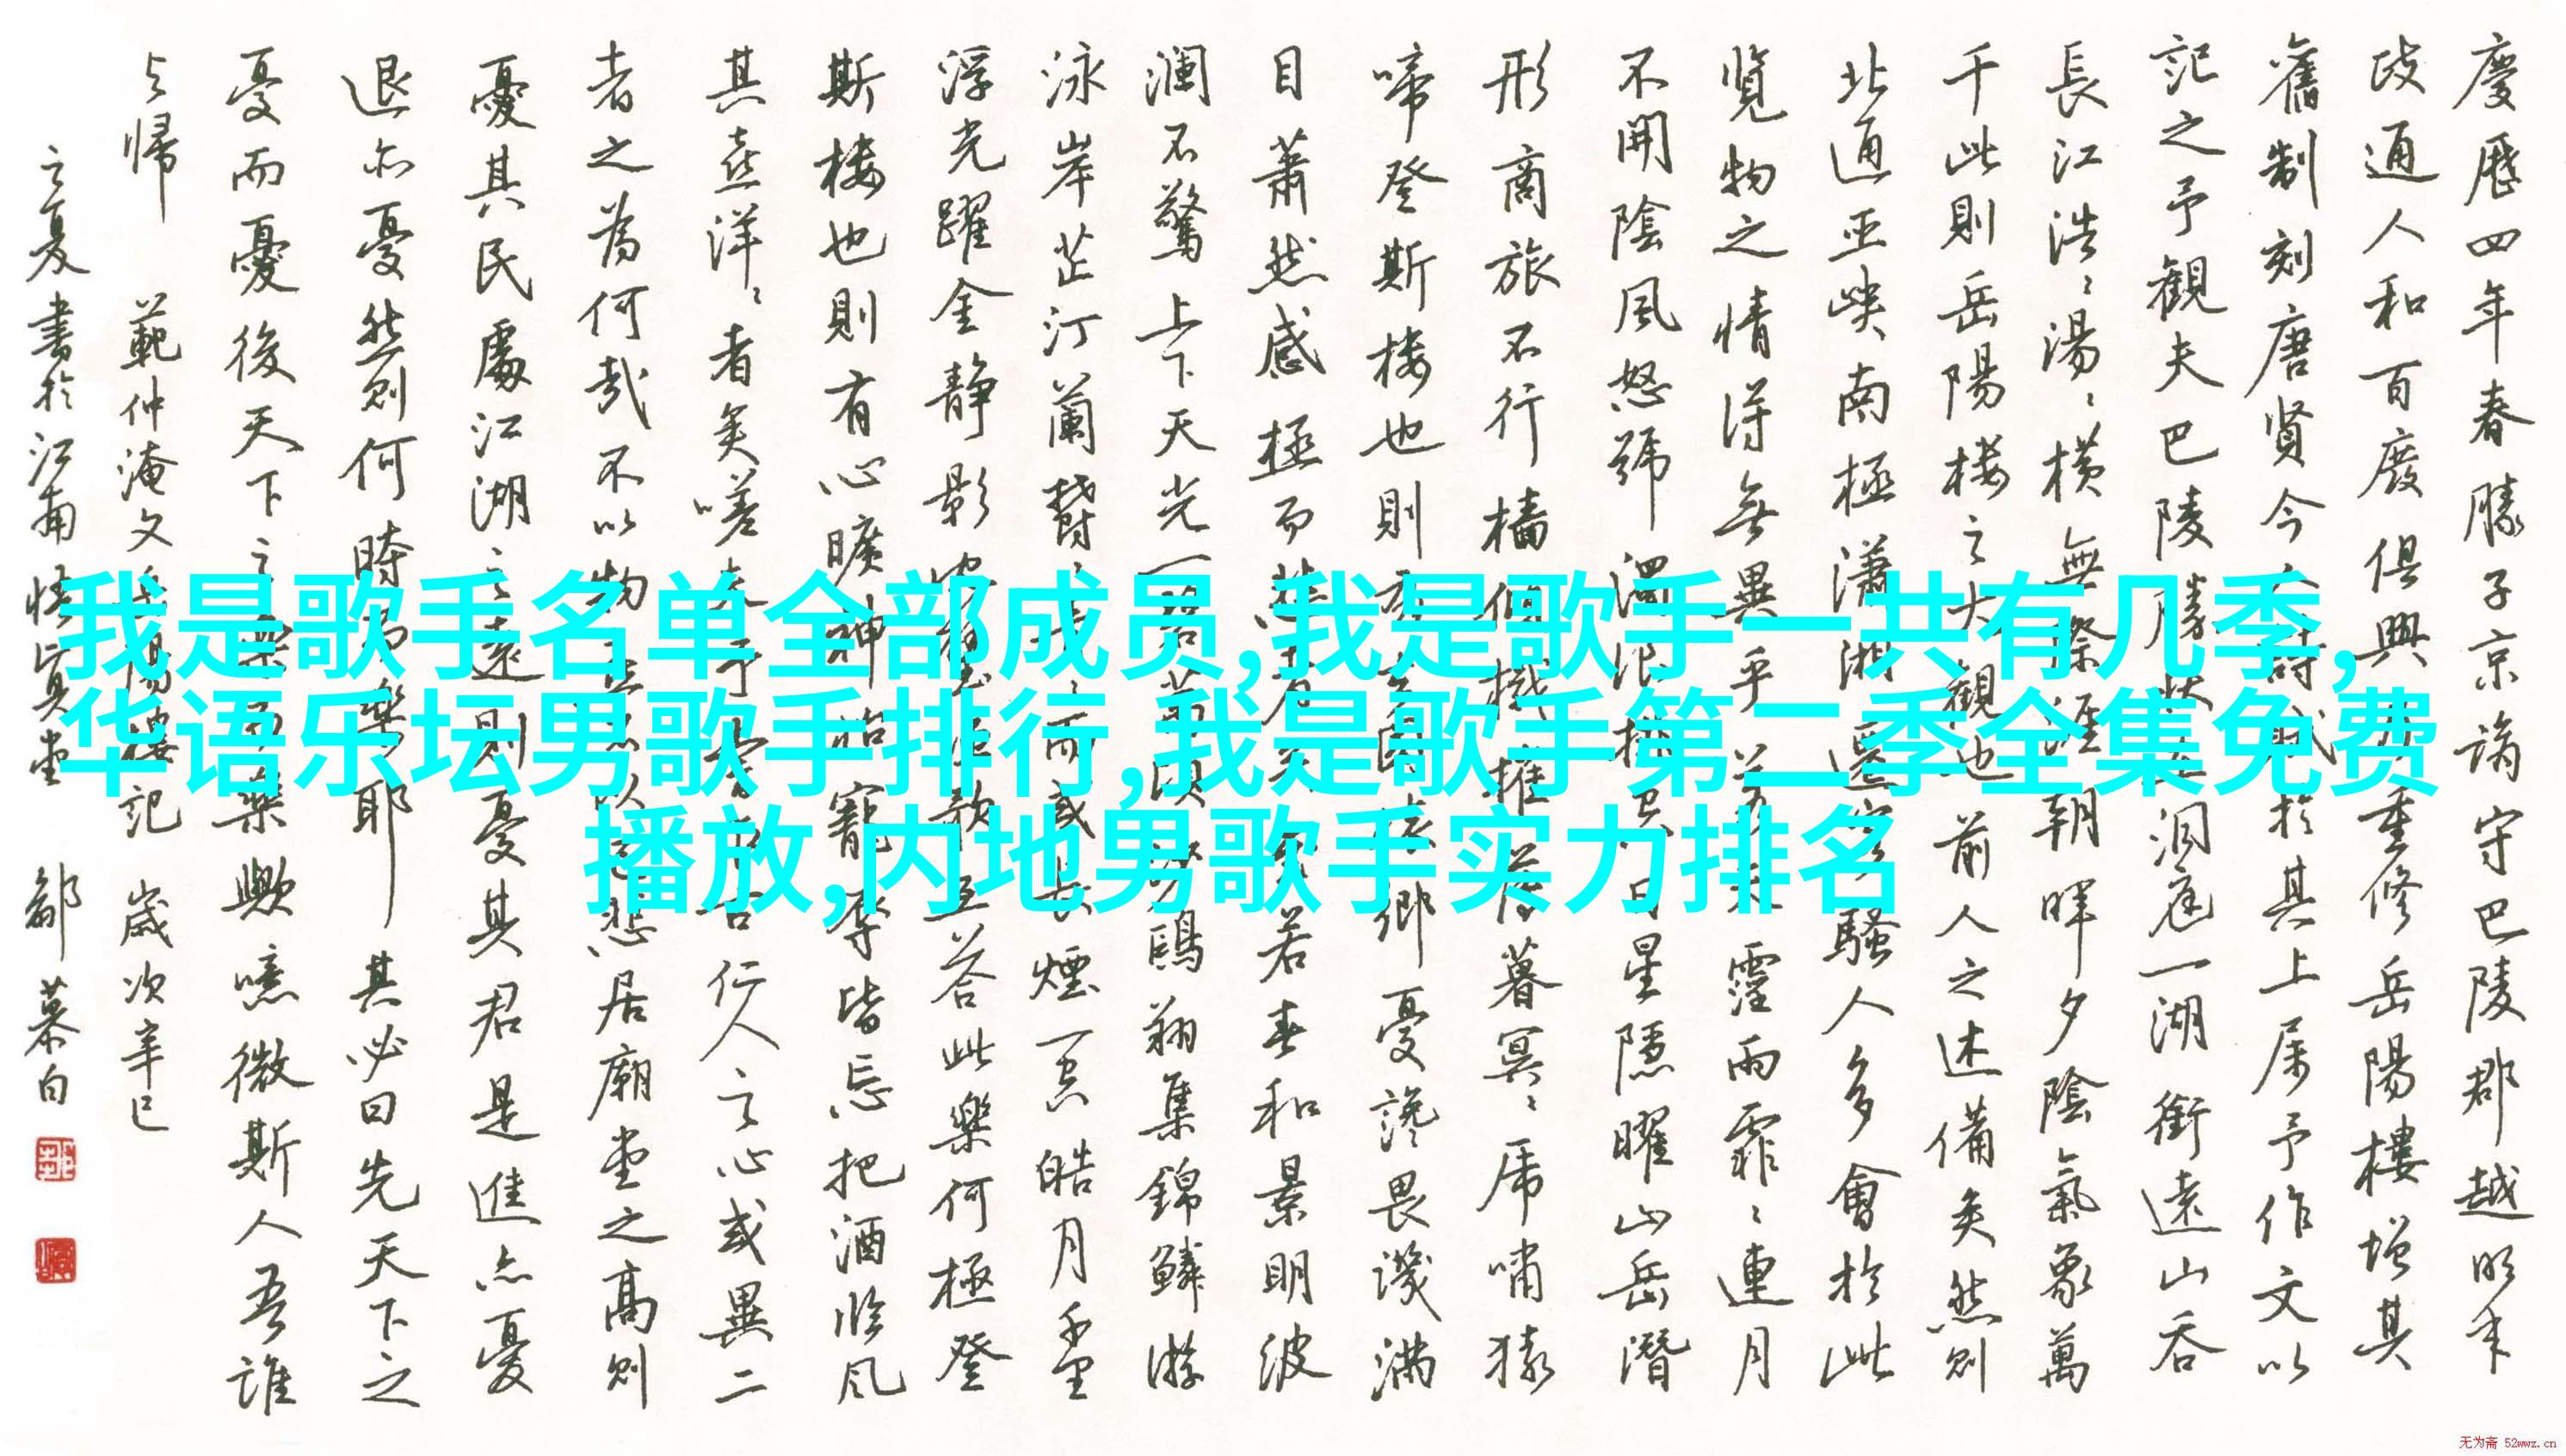 慶歷四年春滕子京謫守巴陵郡越明年
政通人和百廢俱興乃重修岳陽樓增其
舊制刻唐賢今人詩賦於其上屬予作文以
記之予觀夫巴陵勝狀在洞庭一湖銜遠山吞
長江浩〻湯〻橫無際涯朝暉夕陰氣象萬
千此則岳陽樓之大觀也前人之述備矣然則
北通巫峽南極瀟湘遷客騷人多會於此
覽物之情得無異乎若夫霪雨霏〻連月
不開陰風怒號濁浪排空日星隱曜山岳潛
形商旅不行檣傾楫摧薄暮冥〻虎嘯猿
啼登斯樓也則有去國懷鄉憂讒畏譏滿
目蕭然感極而悲者矣至若春和景明波
瀾不驚上下天光一碧萬頃沙鷗翔集錦鱗游
泳岸芷汀蘭郁〻青〻而或長煙一空皓月千里
浮光躍金靜影沉璧漁歌互答此樂何極登
斯樓也則有心曠神怡寵辱皆忘把酒臨風
其喜洋〻者矣嗟夫予嘗求古仁人之心或異二
者之為何哉不以物喜不以己悲居廟堂之高則
憂其民處江湖之遠則憂其君是進亦憂
退亦憂然則何時而樂耶其必曰先天下之
憂而憂後天下之樂而樂歟噫微斯人吾誰
與歸 範仲淹文岳陽樓記 歲次辛巳
立夏書於江南悟真堂 鄒慕白
我是歌手名单全部成员,我是歌手一共有几季,
华语乐坛男歌手排行,我是歌手第二季全集免费
播放,内地男歌手实力排名
无为斋 52wwz.cn